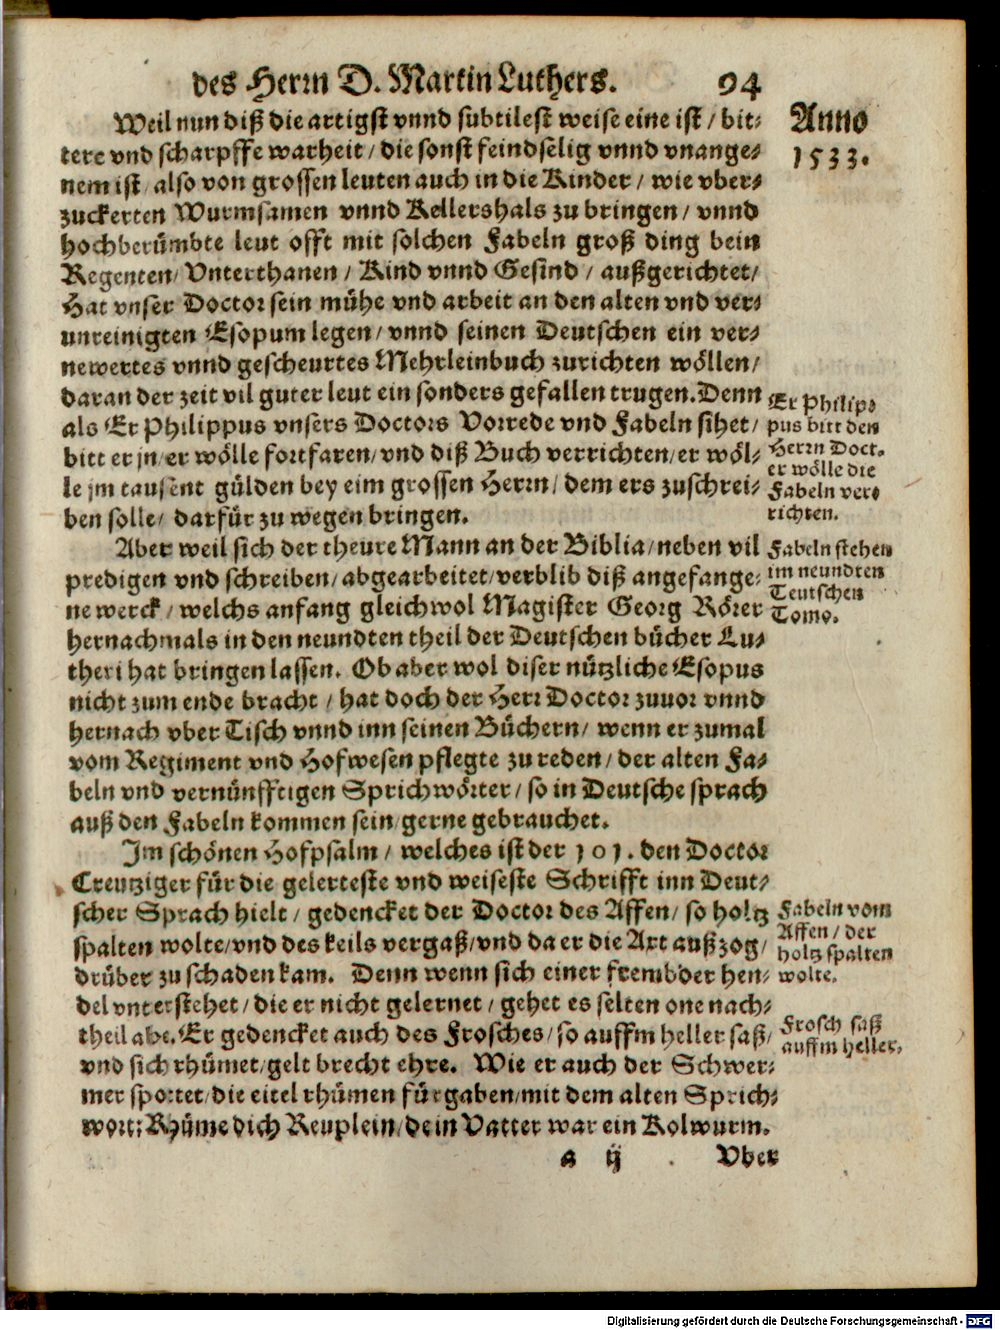 des Herrn D. Martin Luthers. 94
Anno
1533.
Weil nun diß die artigst vnnd subtilest weise eine ist / bit-
tere vnd scharpffe warheit / die sonst feindselig vnnd vnange-
nem ist / also von grossen leuten auch in die Kinder / wie vber-
zuckerten Wurmsamen vnnd Kellershals zu bringen / vnnd
hochberümbte leut offt mit solchen Fabeln groß ding bein
Regenten / Vnterthanen / Kind vnnd Gesind / außgerichtet /
Hat vnser Doctor sein mühe vnd arbeit an den alten vnd ver-
unreinigten Esopum legen / vnnd seinen Deutschen ein ver-
newertes vnnd gescheurtes Mehrleinbuch zurichten wöllen /
daran der zeit vil guter leut ein sonders gefallen trugen. Denn
als Er Philippus vnsers Doctors Vorrede vnd Fabeln sihet /
bitt er jn / er wölle fortfaren / vnd diß Buch verrichten / er wöl-
le jm tausent gülden bey eim grossen Herrn / dem ers zuschrei-
ben solle / darfür zu wegen bringen.
Er Philip-
pus bitt den
Herrn Doct.
er wölle die
Fabeln ver-
richten.
Aber weil sich der theure Mann an der Biblia / neben vil
predigen vnd schreiben / abgearbeitet / verblib diß angefange-
ne werck / welchs anfang gleichwol Magister Georg Rörer
hernachmals in den neundten theil der Deutschen bücher Lu-
theri hat bringen lassen. Ob aber wol diser nützliche Esopus
nicht zum ende bracht / hat doch der Herr Doctor zuuor vnnd
hernach vber Tisch vnnd inn seinen Büchern / wenn er zumal
vom Regiment vnd Hofwesen pflegte zu reden / der alten Fa-
beln vnd vernünfftigen Sprichwörter / so in Deutsche sprach
auß den Fabeln kommen sein / gerne gebrauchet.
Fabeln stehen
im neundten
Teutschen
Tomo.
Im schönen Hofpsalm / welches ist der 101. den Doctor
Creutziger für die gelerteste vnd weiseste Schrifft inn Deut-
scher Sprach hielt / gedencket der Doctor des Affen / so holtz
spalten wolte / vnd des keils vergaß / vnd da er die Axt außzog /
drüber zu schaden kam. Denn wenn sich einer frembder hen-
del vnterstehet / die er nicht gelernet / gehet es selten one nach-
theil abe. Er gedencket auch des Frosches / so auffm heller saß /
vnd sich rhümet / gelt brecht ehre. Wie er auch der Schwer-
mer spottet / die eitel rhümen fürgaben / mit dem alten Sprich-
wort: Rhüme dich Reuplein / dein Vatter war ein Kolwurm.
Fabeln vom
Affen / der
holtz spalten
wolte.
Frosch saß
auffm heller.
a ij Vber
Digitalisierung gefördert durch die Deutsche Forschungsgemeinschaft - DFG